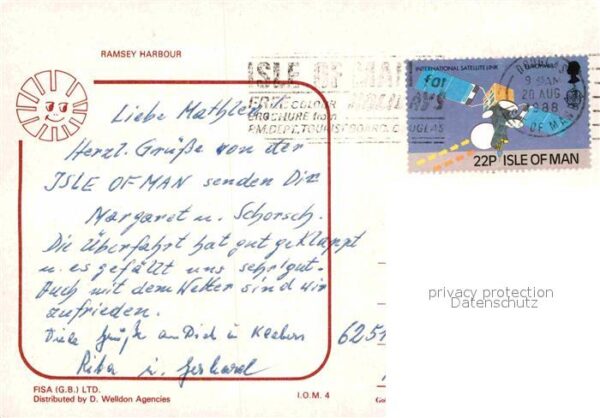 RAMSEY HARBOUR
ISLE OF MAN
for HOLIDAYS
FREE COLOUR
BROCHURE from
P.M.DEPT, TOURIST BOARD, DOUGLAS
9 30AM
20 AUG
1988
OF MAN
INTERNATIONAL SATELLITE LINK
22P ISLE OF MAN
Liebe
Herzl. Grüße von der
ISLE OF MAN senden Dir
Margaret u. Schorsch.
Die Überfahrt hat gut geklappt
u. es gefällt uns sehr gut.
Auch mit dem Wetter sind wir
zufrieden.
Viele Grüße an Dich in
625
Rita u. Gerhard
privacy protection
Datenschutz
FISA (G.B.) LTD.
Distributed by D. Welldon Agencies
I.O.M. 4